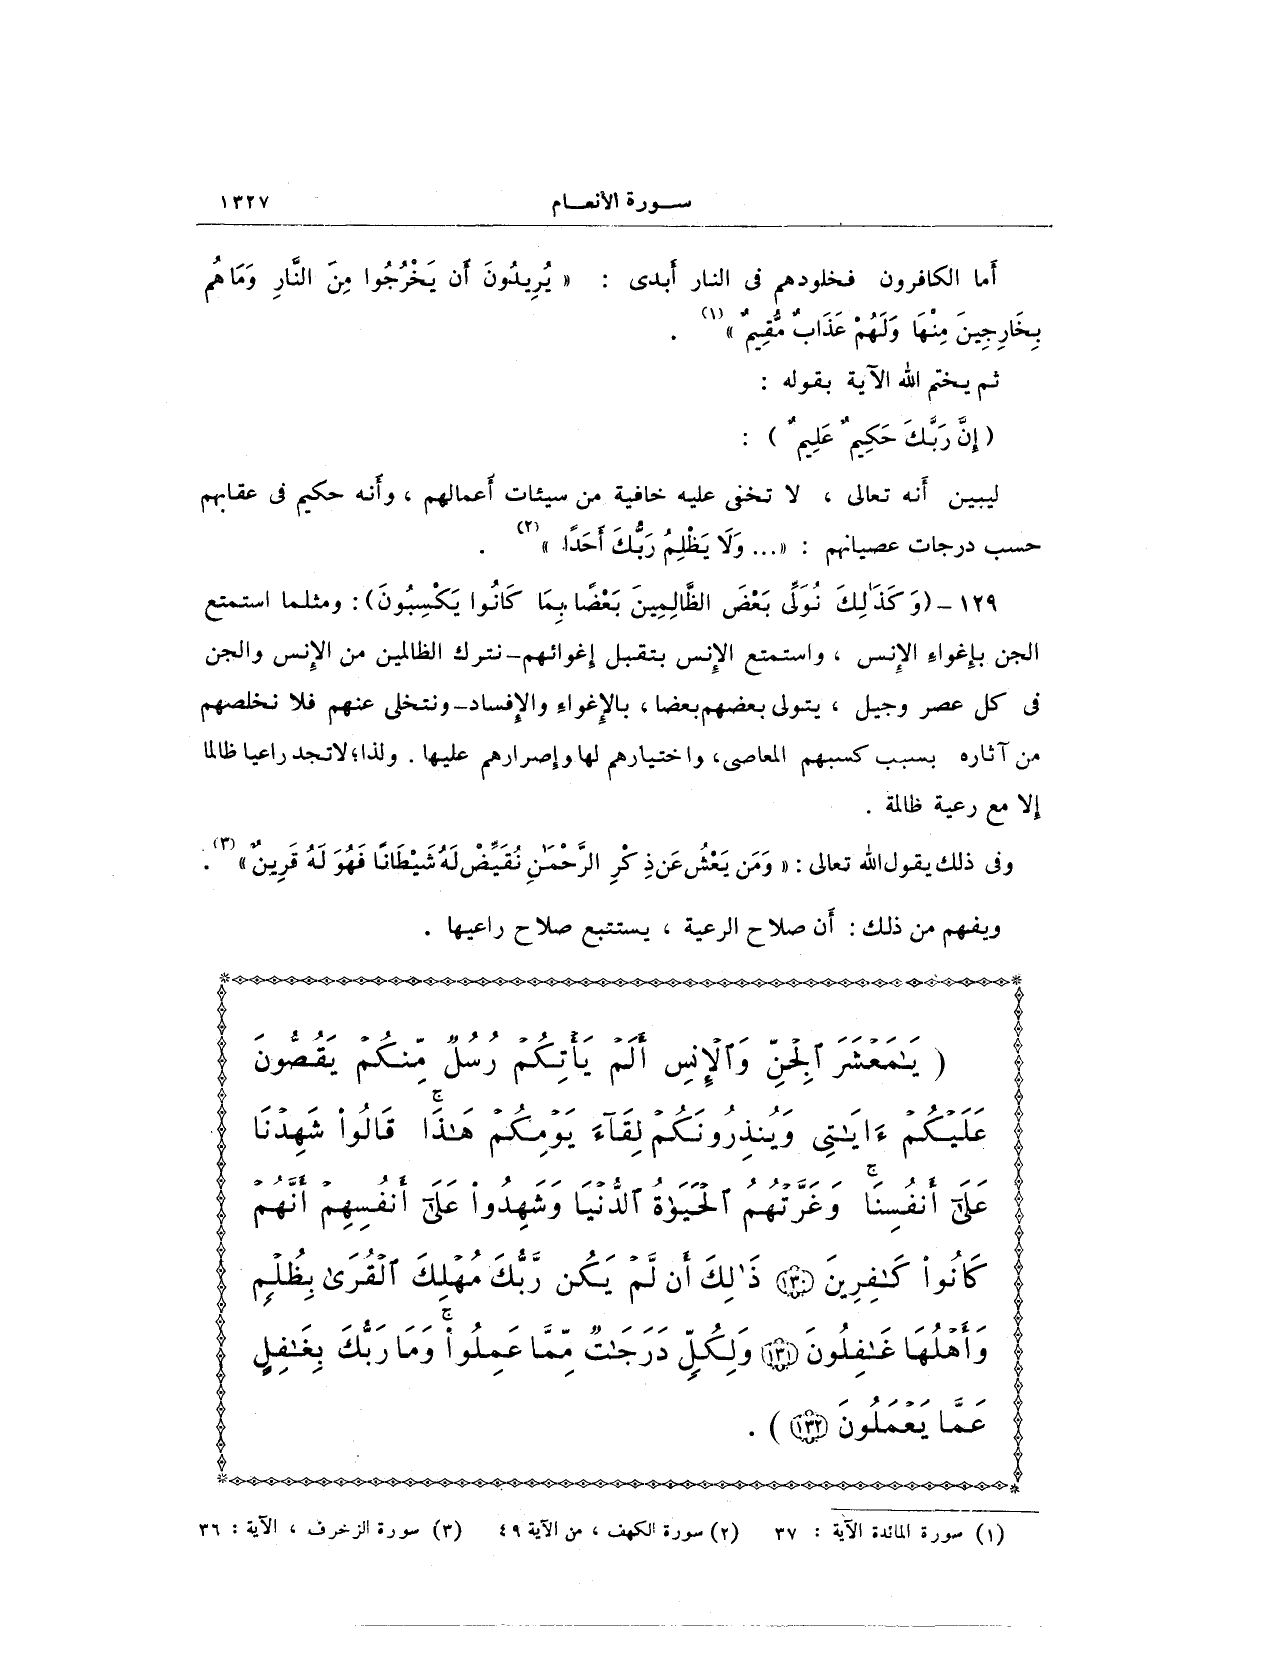 سـورة الأنعـام ١٣٢٧
أما الكافرون فخلودهم فى النار أبدى : « يُرِيدُونَ أَن يَخْرُجُوا مِنَ النَّارِ وَمَا هُم
بِخَارِجِينَ مِنْهَا وَلَهُمْ عَذَابٌ مُّقِيمٌ »(١) .
ثم يختم الله الآية بقوله :
( إِنَّ رَبَّكَ حَكِيمٌ عَلِيمٌ ) :
ليبين أنه تعالى ، لا تخفى عليه خافية من سيئات أعمالهم ، وأنه حكيم فى عقابهم
حسب درجات عصيانهم : «... وَلَا يَظْلِمُ رَبُّكَ أَحَدًا »(٢) .
١٢٩ – (وَكَذَٰلِكَ نُوَلِّى بَعْضَ الظَّالِمِينَ بَعْضًا بِمَا كَانُوا يَكْسِبُونَ) : ومثلما استمتع
الجن بإغواءِ الإِنس ، واستمتع الإِنس بتقبل إغوائهم–نترك الظالمين من الإِنس والجن
فى كل عصر وجيل ، يتولى بعضهم بعضا ، بالإِغواءِ والإِفساد–ونتخلى عنهم فلا نخلصهم
من آثاره بسبب كسبهم المعاصى، واختيارهم لها وإصرارهم عليها . ولذا؛ لاتجد راعيا ظالما
إلا مع رعية ظالمة .
وفى ذلك يقول الله تعالى : « وَمَن يَعْشُ عَن ذِكْرِ الرَّحْمَٰنِ نُقَيِّضْ لَهُ شَيْطَانًا فَهُوَ لَهُ قَرِينٌ »(٣) .
ويفهم من ذلك : أن صلاح الرعية ، يستتبع صلاح راعيها .
( يَٰمَعْشَرَ ٱلْجِنِّ وَٱلْإِنسِ أَلَمْ يَأْتِكُمْ رُسُلٌ مِّنكُمْ يَقُصُّونَ
عَلَيْكُمْ ءَايَٰتِى وَيُنذِرُونَكُمْ لِقَآءَ يَوْمِكُمْ هَٰذَا ۚ قَالُوا۟ شَهِدْنَا
عَلَىٰٓ أَنفُسِنَا ۖ وَغَرَّتْهُمُ ٱلْحَيَوٰةُ ٱلدُّنْيَا وَشَهِدُوا۟ عَلَىٰٓ أَنفُسِهِمْ أَنَّهُمْ
كَانُوا۟ كَٰفِرِينَ ١٣٠ ذَٰلِكَ أَن لَّمْ يَكُن رَّبُّكَ مُهْلِكَ ٱلْقُرَىٰ بِظُلْمٍ
وَأَهْلُهَا غَٰفِلُونَ ١٣١ وَلِكُلٍّ دَرَجَٰتٌ مِّمَّا عَمِلُوا۟ ۚ وَمَا رَبُّكَ بِغَٰفِلٍ
عَمَّا يَعْمَلُونَ ١٣٢ ) .
(١) سورة المائدة الآية : ٣٧ (٢) سورة الكهف ، من الآية ٤٩ (٣) سورة الزخرف ، الآية : ٣٦